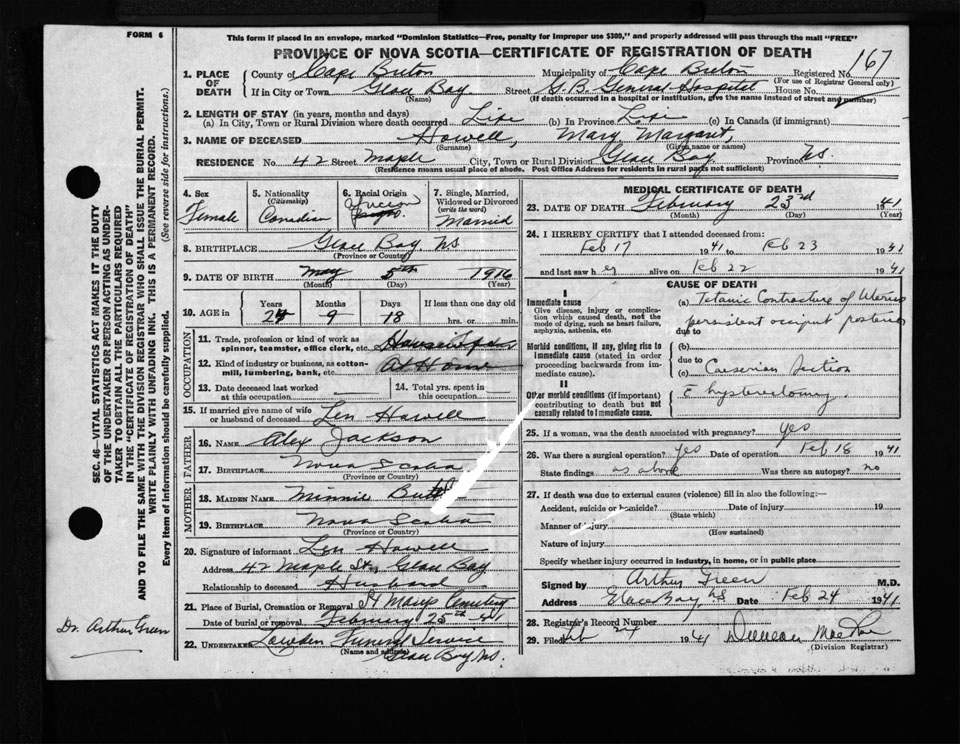 FORM 6
This form if placed in an envelope, marked "Dominion Statistics—Free, penalty for improper use $300," and properly addressed will pass through the mail "FREE"
PROVINCE OF NOVA SCOTIA—CERTIFICATE OF REGISTRATION OF DEATH
167
1. PLACE OF DEATH County of Cape Breton Municipality of Cape Breton Registered No.
(For use of Registrar General only)
If in City or Town Glace Bay Street G. B. General Hospital House No.
(Name) (If death occurred in a hospital or institution, give the name instead of street and number)
2. LENGTH OF STAY (in years, months and days)
(a) In City, Town or Rural Division where death occurred Life (b) In Province Life (c) In Canada (if immigrant)
3. NAME OF DECEASED Howell, Mary Margaret,
(Surname) (Given name or names)
RESIDENCE No. 42 Street Maple City, Town or Rural Division Glace Bay Province NS.
(Residence means usual place of abode. Post Office Address for residents in rural parts not sufficient)
4. Sex Female
5. Nationality (Citizenship) Canadian
6. Racial Origin African
7. Single, Married, Widowed or Divorced (write the word) Married
8. BIRTHPLACE Glace Bay, NS
(Province or Country)
9. DATE OF BIRTH May 5th 1916
(Month) (Day) (Year)
10. AGE in Years Months Days If less than one day old
24 9 18 hrs. or min.
OCCUPATION
11. Trade, profession or kind of work as spinner, teamster, office clerk, etc.
12. Kind of industry or business, as cotton-mill, lumbering, bank, etc. At Home
13. Date deceased last worked at this occupation
14. Total yrs. spent in this occupation
15. If married give name of wife or husband of deceased Len Howell
FATHER
16. NAME Alex Jackson
17. BIRTHPLACE Nova Scotia
(Province or Country)
MOTHER
18. MAIDEN NAME Minnie
19. BIRTHPLACE Nova Scotia
(Province or Country)
20. Signature of informant Len Howell
Address 42 Maple St., Glace Bay
Relationship to deceased Husband
21. Place of Burial, Cremation or Removal St Marys Cemetery
Date of burial or removal February 25th 41
22. UNDERTAKER Funeral Service
(Name and address)
Glace Bay NS.
MEDICAL CERTIFICATE OF DEATH
23. DATE OF DEATH February 23rd 1941
(Month) (Day) (Year)
24. I HEREBY CERTIFY that I attended deceased from:
Feb 17 1941 to Feb 23 1941
and last saw her alive on Feb 22 1941
CAUSE OF DEATH
I
Immediate cause
Give disease, injury or complication which caused death, not the mode of dying, such as heart failure, asphyxia, asthenia, etc
(a) Titanic Contracture of Uterus
persistent occiput posterior
due to
Morbid conditions, if any, giving rise to immediate cause (stated in order proceeding backwards from immediate cause).
(b)
due to
(c) Caeserian Section
II
Other morbid conditions (if important) contributing to death but not causally related to immediate cause.
c̄ hysterectomy.
25. If a woman, was the death associated with pregnancy? yes
26. Was there a surgical operation? yes Date of operation Feb 18 1941
State findings as above Was there an autopsy? no
27. If death was due to external causes (violence) fill in also the following:—
Accident, suicide or homicide? Date of injury 19
(State which)
Manner of injury
(How sustained)
Nature of injury
Specify whether injury occurred in industry, in home, or in public place
Signed by Arthur Green M.D.
Address Glace Bay, NS Date Feb 24 1941
28. Registrar's Record Number
29. Filed Feb 24 1941
(Division Registrar)
SEC. 46—VITAL STATISTICS ACT MAKES IT THE DUTY
OF THE UNDERTAKER OR PERSON ACTING AS UNDER-
TAKER TO OBTAIN ALL THE PARTICULARS REQUIRED
IN THE "CERTIFICATE OF REGISTRATION OF DEATH"
AND TO FILE THE SAME WITH THE DIVISION REGISTRAR WHO SHALL ISSUE THE BURIAL PERMIT.
WRITE PLAINLY WITH UNFADING INK. THIS IS A PERMANENT RECORD.
Every item of Information should be carefully supplied. (See reverse side for instructions.)
Dr. Arthur Green